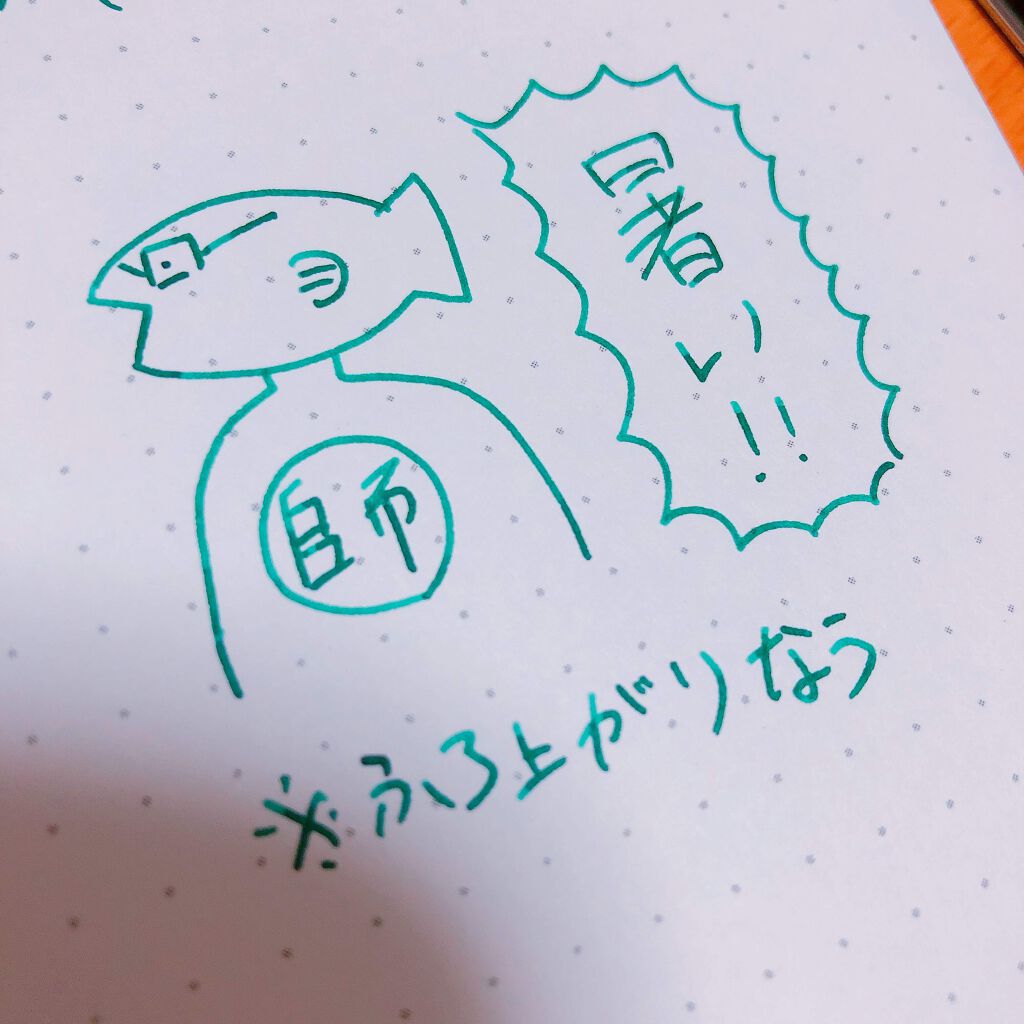 暑い!!
師
※ふろ上がりなう